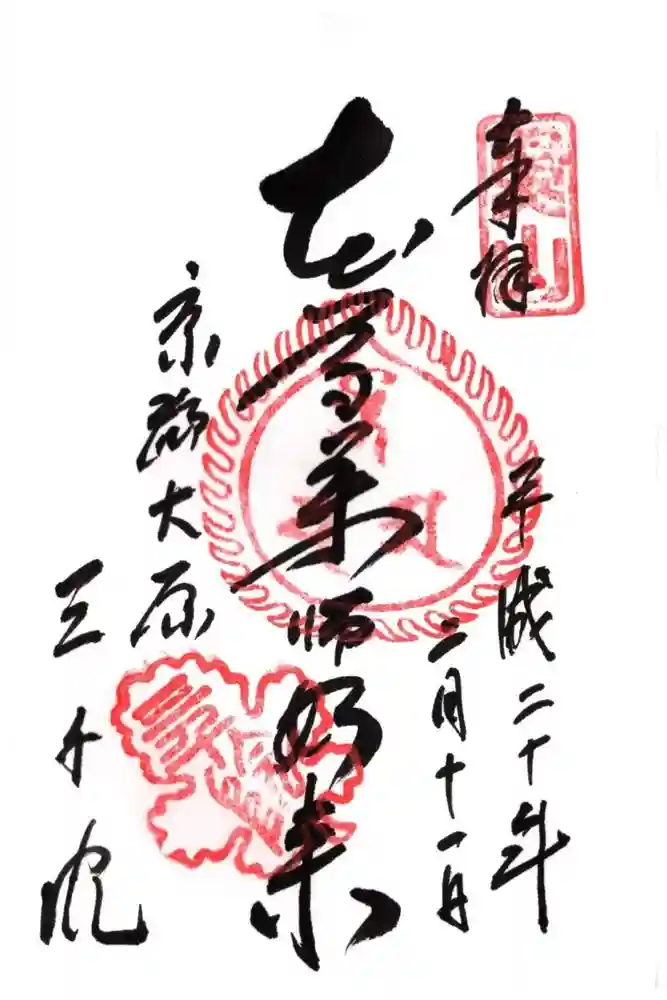 奉拝
平成二十年
二月十一日
薬師如来
京都大原
三千院